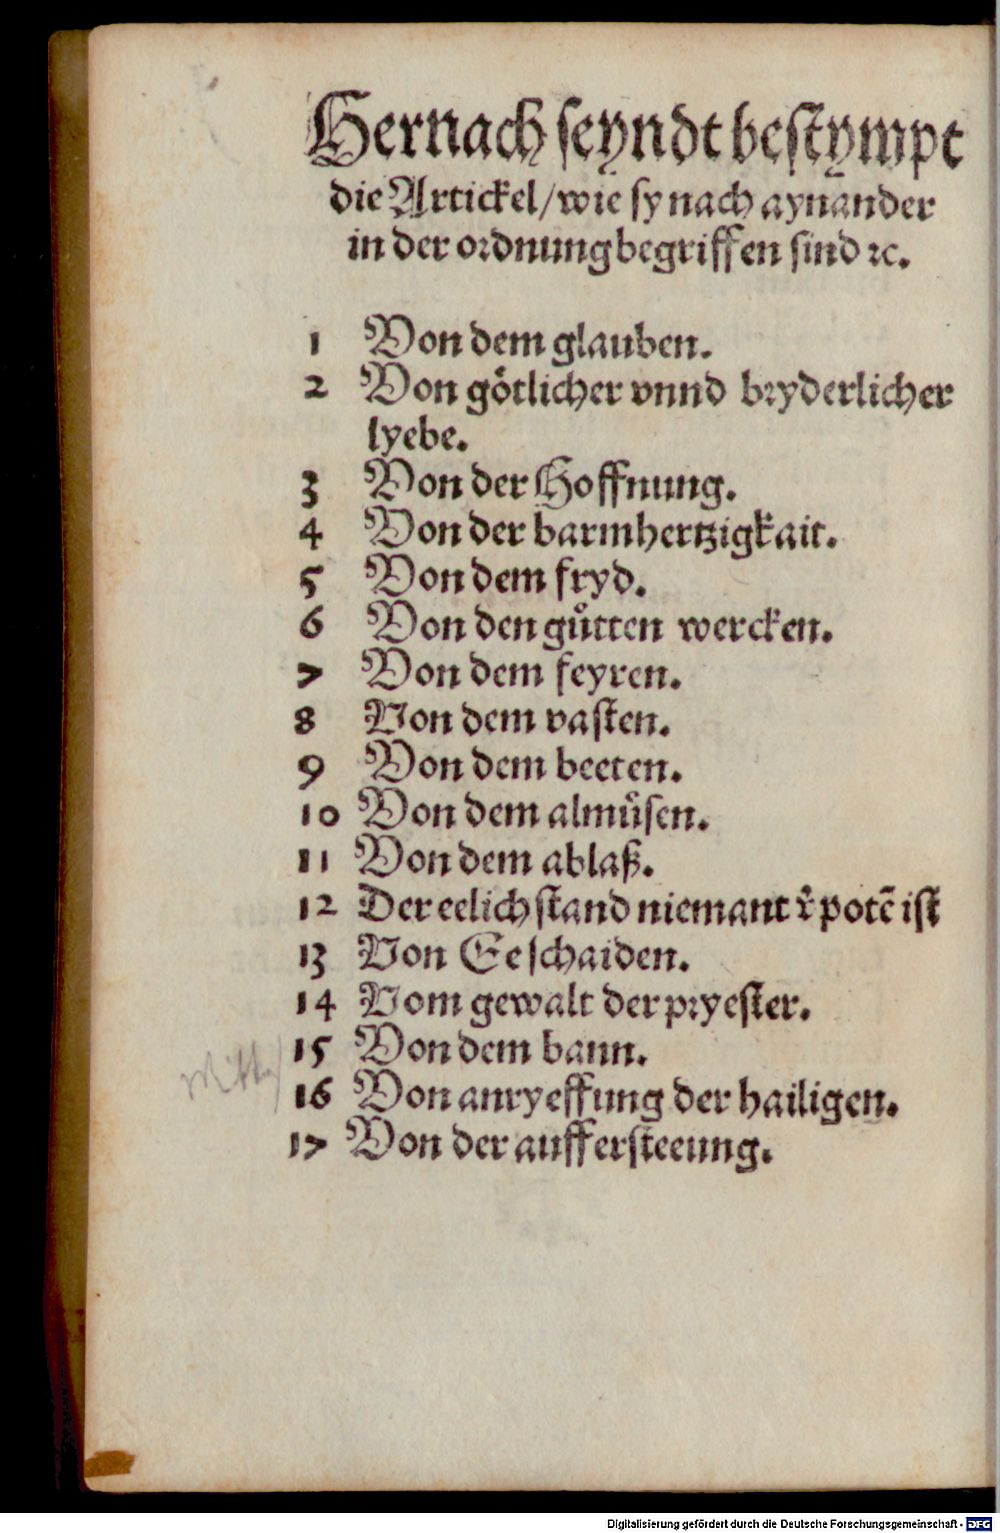 Hernach seyndt bestympt
die Artickel/wie sy nach aynander
in der ordnung begriffen sind ꝛc.
1 Von dem glauben.
2 Von götlicher vnnd bryderlicher
lyebe.
3 Von der Hoffnung.
4 Von der barmhertzigkait.
5 Von dem fryd.
6 Von den gůtten wercken.
7 Von dem feyren.
8 Von dem vasten.
9 Von dem beeten.
10 Von dem almůsen.
11 Von dem ablaß.
12 Der eelich stand niemant v̉potē ist
13 Von Ee schaiden.
14 Vom gewalt der pryester.
15 Von dem bann.
16 Von anryeffung der hailigen.
17 Von der auffersteeung.
Digitalisierung gefördert durch die Deutsche Forschungsgemeinschaft - DFG